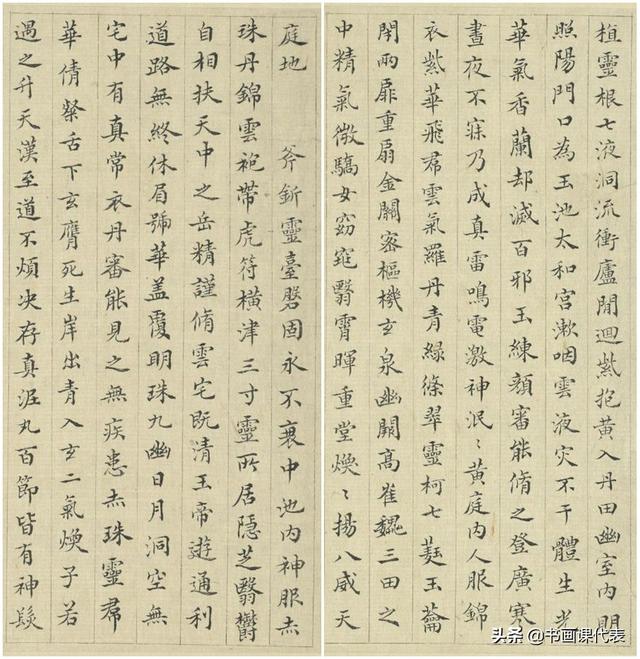 植靈根七液洞流衝廬閒迴紫抱黃入丹田幽室內明
照陽門口為玉池太和宮漱咽雲液灾不干體生光
華氣香蘭却滅百邪玉練顏審能脩之登廣寒
晝夜不寐乃成真雷鳴電激神泯〻黃庭內人服錦
衣紫華飛帬雲氣羅丹青綠條翠靈柯七蕤玉籥
閇兩扉重扇金關密樞機玄泉幽闕高崔巍三田之
中精氣微驕女窈窕翳霄暉重堂煥〻揚八威天
庭地 斧釿靈臺磐固永不衰中池內神服赤
珠丹錦雲袍帶虎符橫津三寸靈所居隱芝翳鬱
自相扶天中之岳精謹脩雲宅既清玉帝遊通利
道路無終休眉號華盖覆明珠九幽日月洞空無
宅中有真常衣丹審能見之無疾患赤珠靈帬
華倩粲舌下玄膺死生岸出青入玄二氣煥子若
遇之升天漢至道不煩决存真泥丸百節皆有神髮
头条 @书画课代表